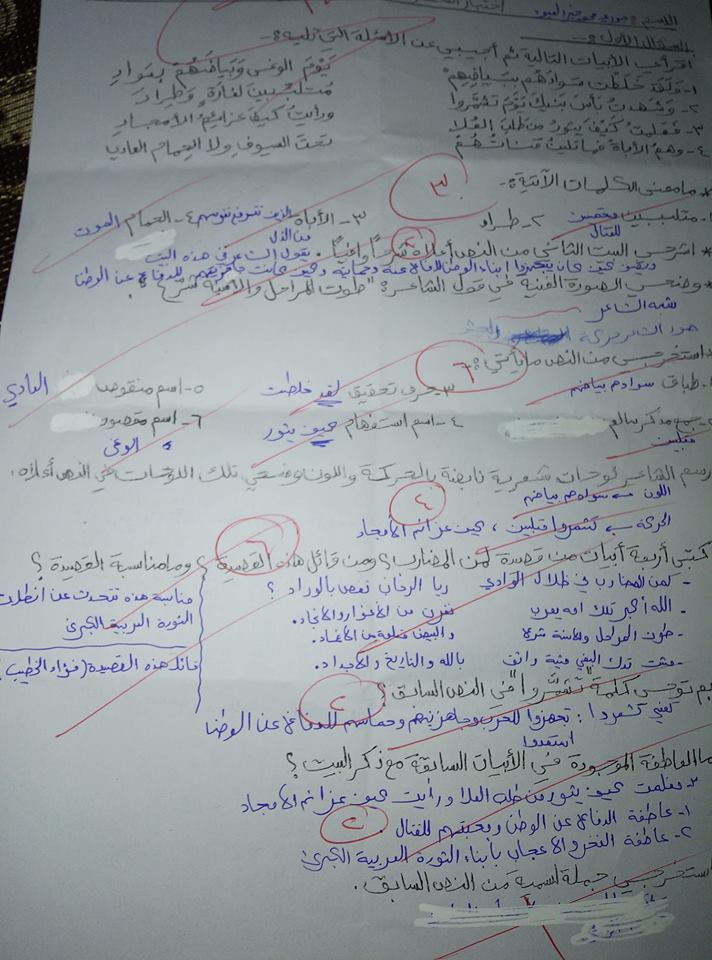 الاسم :
اختبار
السؤال الأول :-
اقرأي الأبيات التالية ثم أجيبي عن الأسئلة التي تليه :-
١- ولقد خلطت سوادهم ببياضهم يوم الوغى وبياضهم بسواد
٢- وشهدت بأس بنيك يوم تشمروا متلببين لغارة وطراد
٣- فعلمت كيف يثور من طلب العلا ورأيت كيف عزائم الأمجاد
٤- وهم الأباة فما تلين قناتهم تحت السيوف ولا الحمام العادي
* ما معنى الكلمات الآتية :-
٣
١- متلببين متحمسين للقتال ٢- طراد ٣- الأباة الذين تترفع نفوسهم عن الذل ٤- الحمام الموت
* اشرحي البيت الثاني من النص أعلاه شرحاً وافياً . يقول الشاعر في هذه البيت
أبناء الوطن للدفاع عنه وحمايته وكيف كانت جاهزيتهم للدفاع عن الوطن
* وضحي الصورة الفنية في قول الشاعر : " طوت المراحل والأسنة شرع "
شبه الشاعر
صور الشاعر
استخرجي من النص ما يأتي :-
٦
١- طباق سوادهم بياضهم ٣- حرف تحقيق لقد خلطت ٥- اسم منقوص العادي
٢- جمع مذكر سالم ٤- اسم استفهام كيف يثور ٦- اسم مقصور
الوغى
رسم الشاعر لوحات شعرية نابضة بالحركة واللون وضحي تلك اللوحات في النص أعلاه .
اللون ← سوادهم بياضهم
٤
الحركة ← تشمروا متلببين ، كيف عزائم الأمجاد
٦
اكتبي أربعة أبيات من قصيدة لمن المضارب ؟ ومن قائل هذه القصيدة ؟ وما مناسبة القصيدة ؟
- لمن المضارب في ظلال الوادي ريا الرحاب تغص بالوراد ؟
- الله أكبر تلك أمة يعرب نفرت من الأغوار والأنجاد .
- طوت المراحل والأسنة شرع والبيض متلعة من الأغماد .
- ومشت تدك البغي مشية واثق بالله والتاريخ والأجداد .
مناسبة هذه تتحدث عن انطلاق
الثورة العربية الكبرى
قائل هذه القصيدة ( فؤاد الخطيب )
بم توحي كلمة " تشمَّروا " في النص السابق ؟
تعني تشمروا : تجهزوا للحرب وجاهزيتهم وحماسهم للدفاع عن الوطن
استعدوا
ما العاطفة الموجودة في الأبيات السابقة مع ذكر البيت ؟
فعلمت كيف يثور من طلب العلا ورأيت كيف عزائم الأمجاد
١- عاطفة الدفاع عن الوطن ومحبتهم للقتال .
٢- عاطفة الفخر والاعجاب بأبناء الثورة العربية الكبرى
استخرجي جملة اسمية من النص السابق .